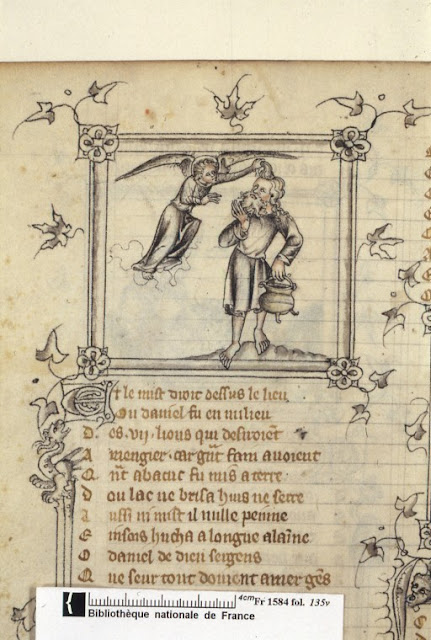 Et le mist droit dessus le lieu
Ou daniel fu en milieu
D es .vij. lions qui desiroiēt
A mengier . car grāt fam avoient
Q n̄t abacuc fu mis a terre
D ou lac ne brisa huis ne serre
A ussi ni mist il nulle peinne
E insois hucha a longue alaīne
O daniel de dieu sergens
Q ue seur tout doivent amer gēs
4cm Fr 1584 fol. 135v
Bibliothèque nationale de France